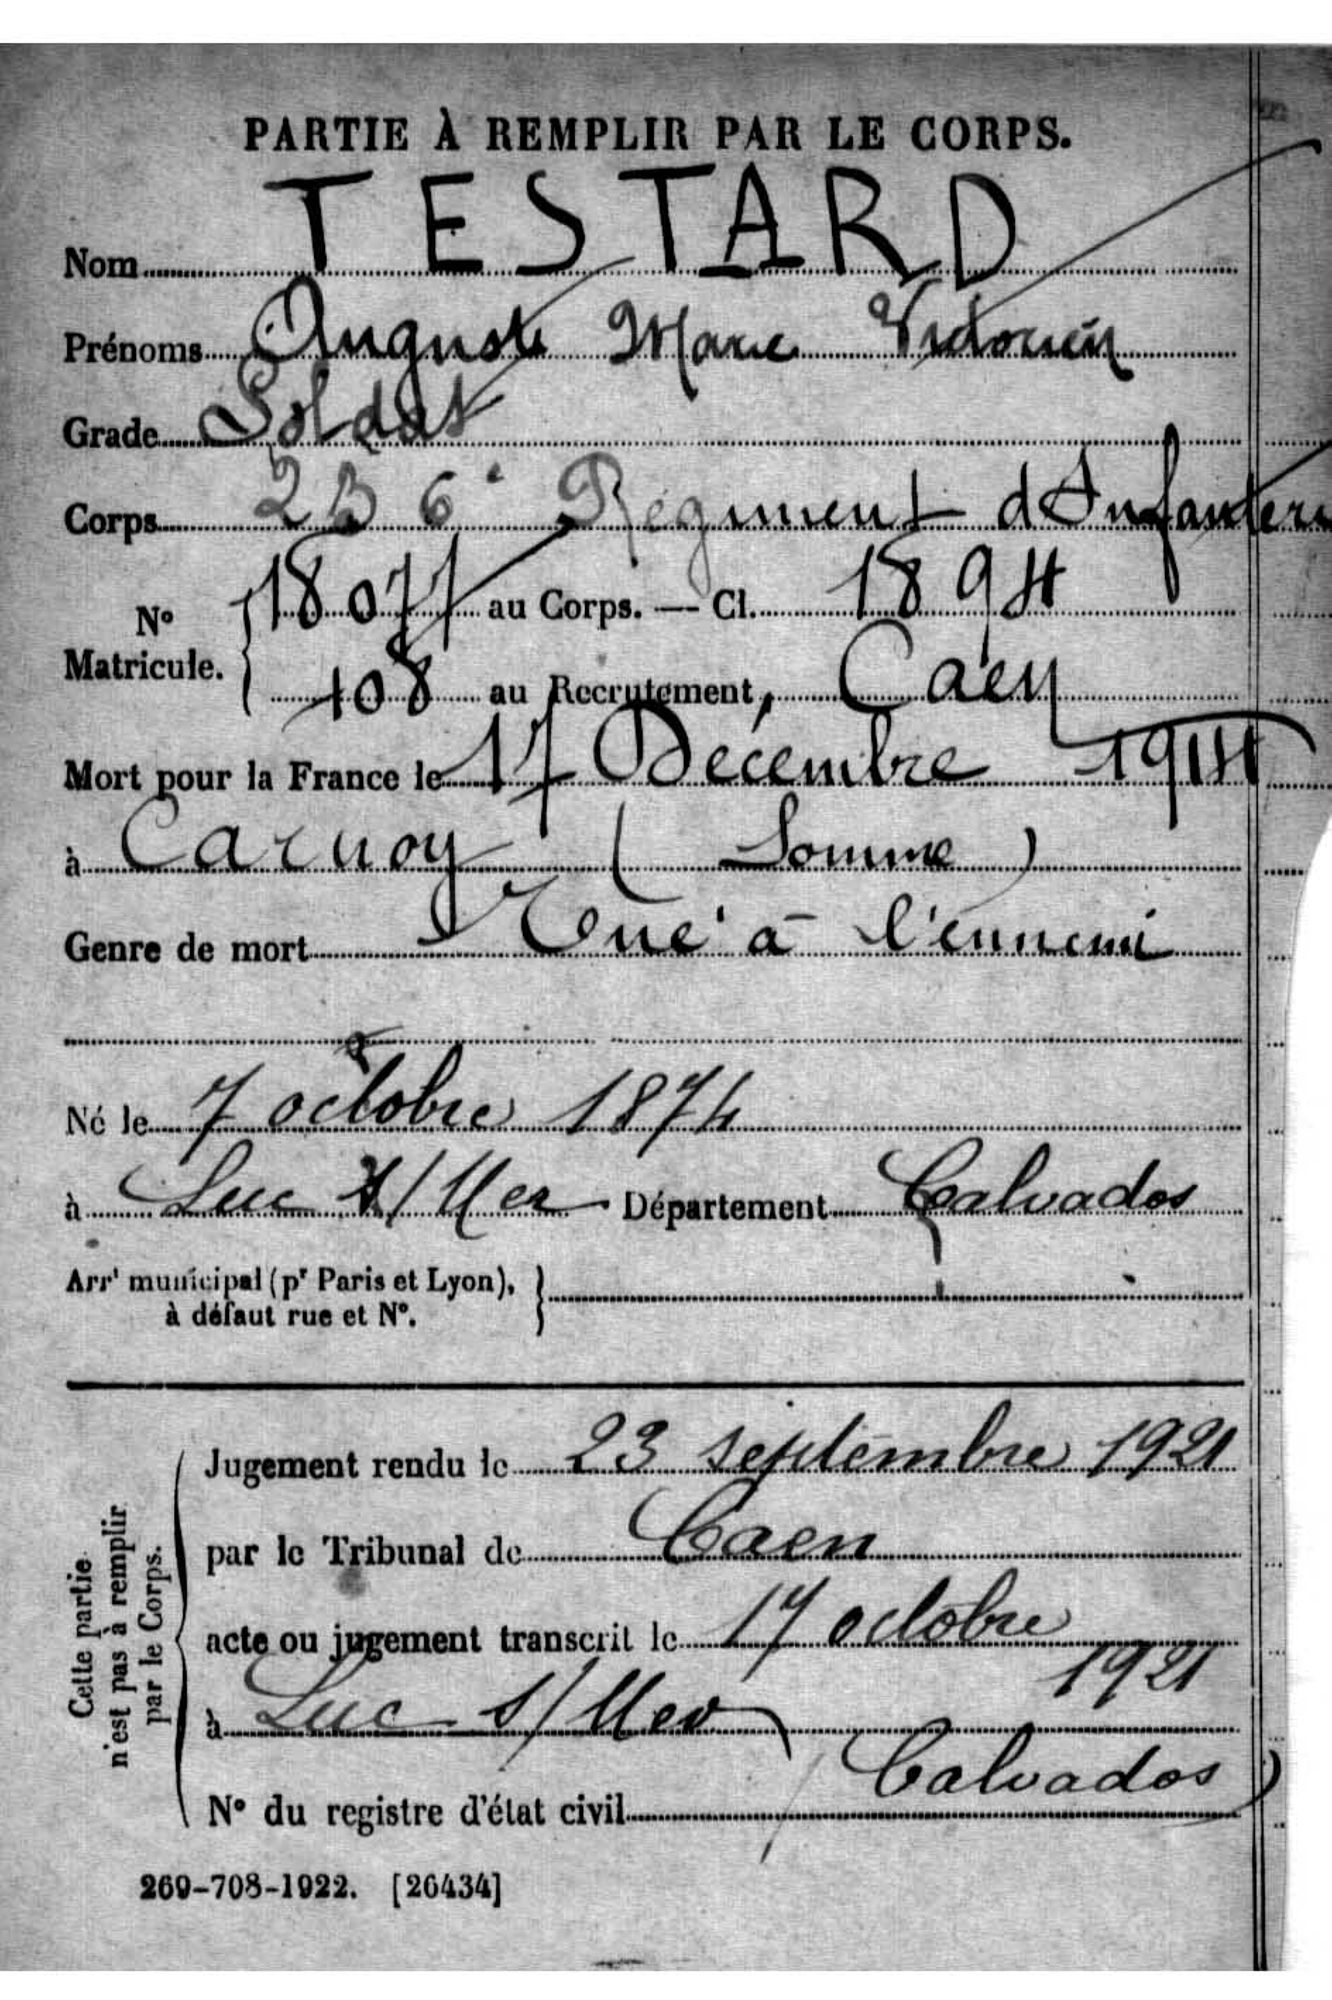 PARTIE À REMPLIR PAR LE CORPS.
Nom TESTARD
Prénoms Auguste Marie Victorien
Grade Soldat
Corps 236e Régiment d'Infanterie
No Matricule. 18077 au Corps. — Cl. 1894
408 au Recrutement, Caen
Mort pour la France le 17 Décembre 1914
à Carnoy (Somme)
Genre de mort Tué à l'ennemi
Né le 7 octobre 1874
à Luc s/Mer Département Calvados
Arrt municipal (pr Paris et Lyon),
à défaut rue et No.
Cette partie n'est pas à remplir par le Corps.
Jugement rendu le 23 septembre 1921
par le Tribunal de Caen
acte ou jugement transcrit le 17 octobre 1921
à Luc s/Mer
Calvados)
No du registre d'état civil
269-708-1922. [26434]